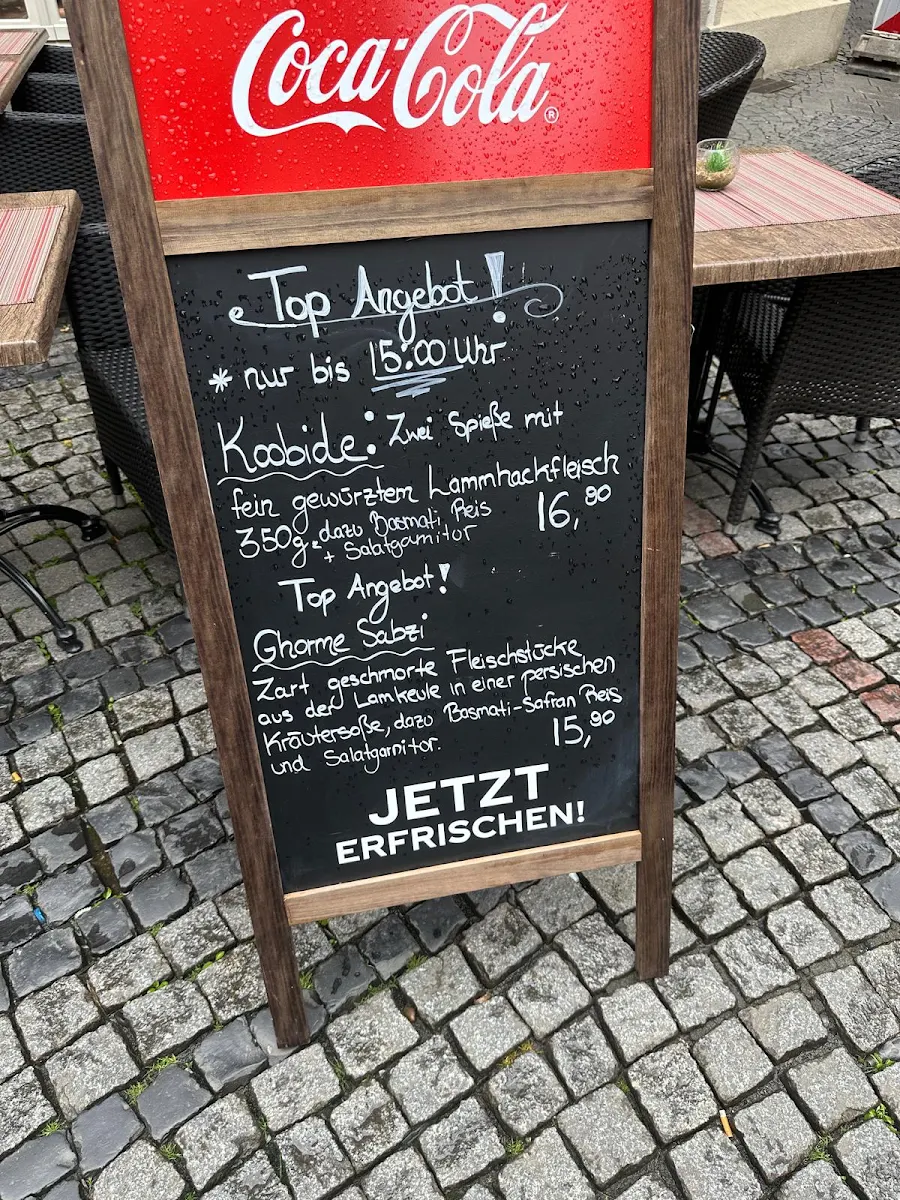 Coca-Cola®
Top Angebot!
* nur bis 15:00 Uhr
Koobide: Zwei Spieße mit
fein gewürztem Lammhackfleisch
350g, dazu Basmati, Reis 16,90
+ Salatgarnitor
Top Angebot!
Ghorme Sabzi
Zart geschmorte Fleischstücke
aus der Lamkeule in einer persischen
Kräutersoße, dazu Basmati-Safran Reis
und Salatgarnitor. 15,90
JETZT
ERFRISCHEN!